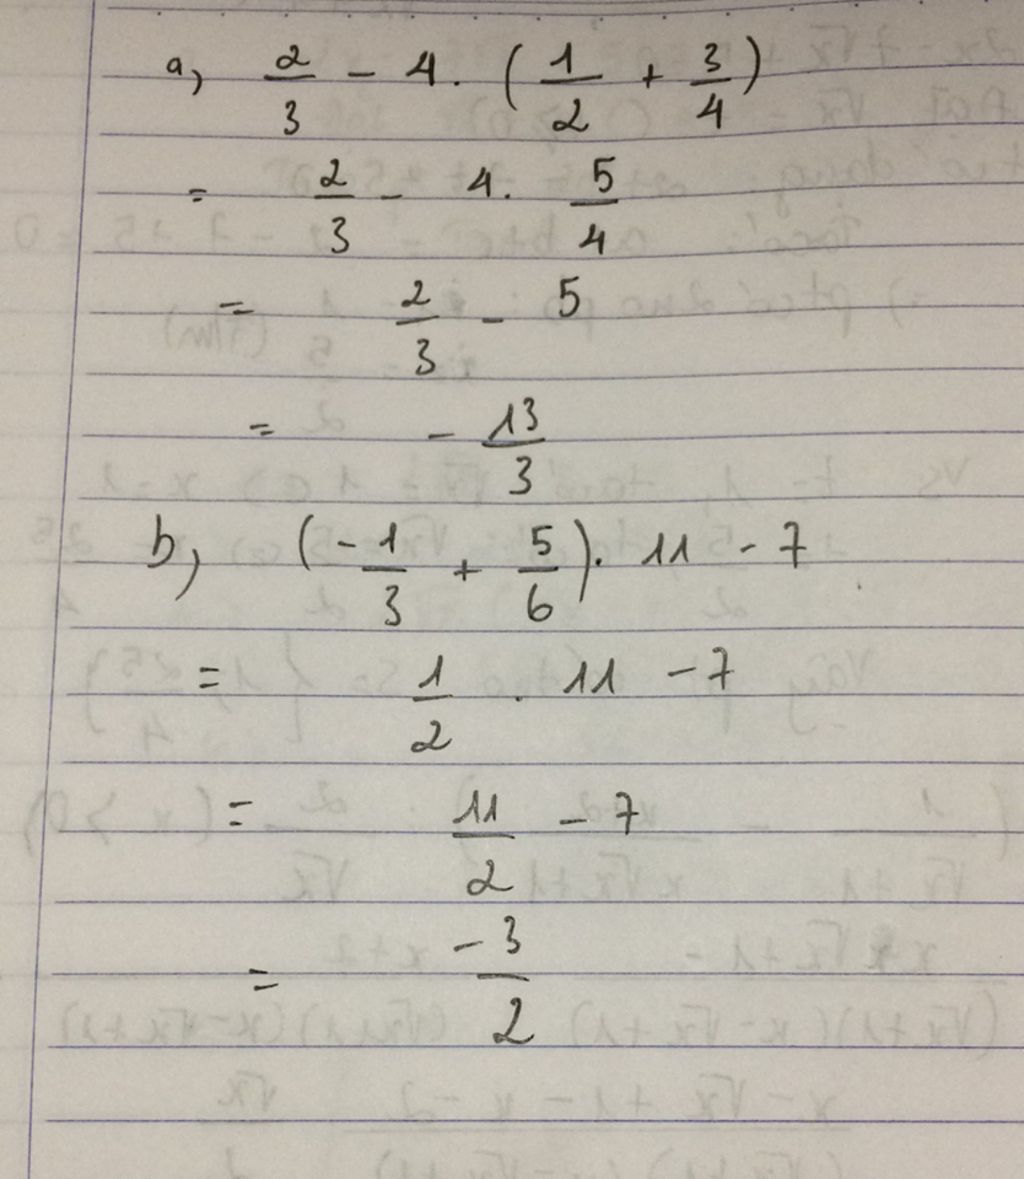 a, 2/3 - 4. (1/2 + 3/4)
= 2/3 - 4. 5/4
= 2/3 - 5
= - 13/3
b, (-1/3 + 5/6). 11 - 7
= 1/2 . 11 - 7
= 11/2 - 7
= -3/2